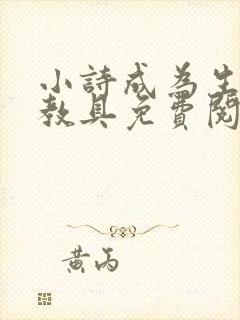 小詩成為生
教具免費閱
黃丙